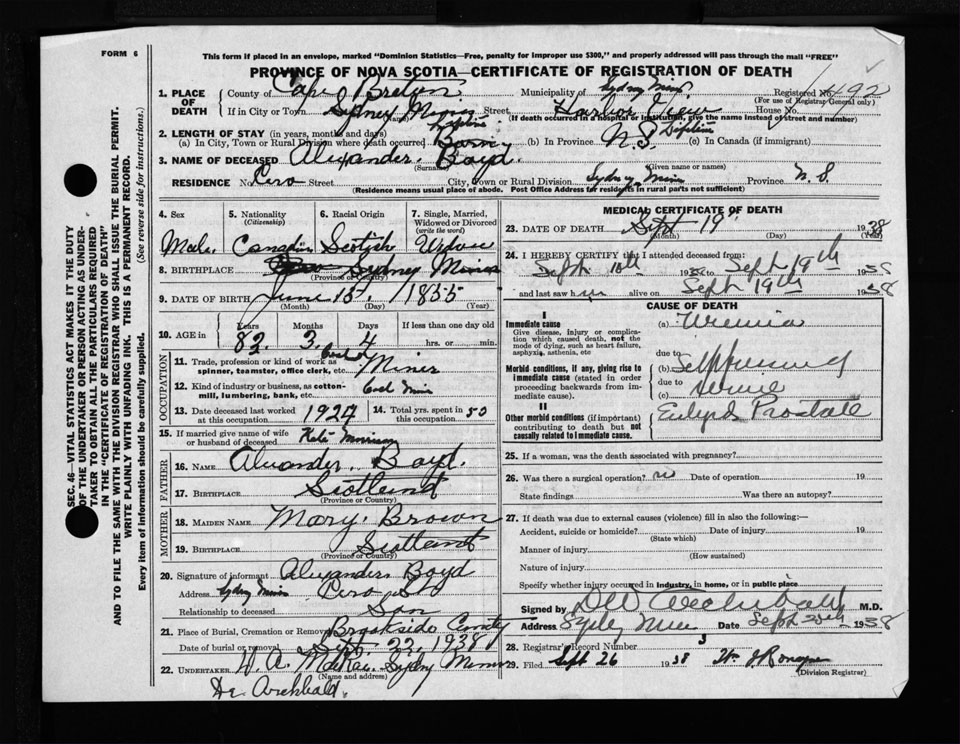 FORM 6
This form if placed in an envelope, marked "Dominion Statistics—Free, penalty for improper use $300," and properly addressed will pass through the mail "FREE"
PROVINCE OF NOVA SCOTIA—CERTIFICATE OF REGISTRATION OF DEATH
1. PLACE OF DEATH
County of Cape Breton Municipality of Sydney Mines Registered No. 492
(For use of Registrar General only)
If in City or Town Sydney Mines Street Harbor View House No.
(If death occurred in a hospital or institution, give the name instead of street and number)
2. LENGTH OF STAY (in years, months and days)
(a) In City, Town or Rural Division where death occurred Lifetime (b) In Province N.S. Lifetime (c) In Canada (if immigrant)
3. NAME OF DECEASED Alexander. Boyd.
(Surname) (Given name or names)
RESIDENCE No. Pero Street City, Town or Rural Division Sydney Mines Province N. S.
(Residence means usual place of abode. Post Office Address for residents in rural parts not sufficient)
4. Sex
Male
5. Nationality
(Citizenship)
Canadian
6. Racial Origin
Scotish
7. Single, Married, Widowed or Divorced
(write the word)
8. BIRTHPLACE Sydney Mines
(Province or Country)
9. DATE OF BIRTH June 15. 1855
(Month) (Day) (Year)
10. AGE in
Years Months Days If less than one day
83. 3. 4 hrs. or min.
OCCUPATION
11. Trade, profession or kind of work as spinner, teamster, office clerk, etc. Miner
12. Kind of industry or business, as cotton-mill, lumbering, bank, etc. Coal Mine
13. Date deceased last worked at this occupation 1927
14. Total yrs. spent in this occupation 50
15. If married give name of wife or husband of deceased Kate Morrison
FATHER
16. NAME Alexander. Boyd.
17. BIRTHPLACE Scotland
(Province or Country)
MOTHER
18. MAIDEN NAME Mary. Brown
19. BIRTHPLACE Scotland
(Province or Country)
20. Signature of informant Alexander Boyd
Address Sydney Mines Pero St
Relationship to deceased Son
21. Place of Burial, Cremation or Removal Brookside
Date of burial or removal Sept. 22, 1938
22. UNDERTAKER W. A. Sydney Mines
(Name and address)
Dr. Archibald.
MEDICAL CERTIFICATE OF DEATH
23. DATE OF DEATH Sept 19 1938
(Month) (Day) (Year)
24. I HEREBY CERTIFY that I attended deceased from:
Sept 10th 1938 to Sept 19th 1938
and last saw him alive on Sept 19th 1938
CAUSE OF DEATH
I
Immediate cause
Give disease, injury or complication which caused death, not the mode of dying, such as heart failure, asphyxia, asthenia, etc
(a) Uremia
due to
Morbid conditions, if any, giving rise to immediate cause (stated in order proceeding backwards from immediate cause).
(b)
due to
(c) Senile
II
Other morbid conditions (if important) contributing to death but not causally related to immediate cause.
Enlarged Prostate
25. If a woman, was the death associated with pregnancy?
26. Was there a surgical operation? no Date of operation 19
State findings Was there an autopsy?
27. If death was due to external causes (violence) fill in also the following:—
Accident, suicide or homicide? Date of injury 19
(State which)
Manner of injury
(How sustained)
Nature of injury
Specify whether injury occurred in industry, in home, or in public place
Signed by D W Archibald M.D.
Address Sydney Mines Date Sept 20th 1938
28. Registrar's Record Number
29. Filed Sept 26 1938
(Division Registrar)
SEC. 46—VITAL STATISTICS ACT MAKES IT THE DUTY
OF THE UNDERTAKER OR PERSON ACTING AS UNDER-
TAKER TO OBTAIN ALL THE PARTICULARS REQUIRED
IN THE "CERTIFICATE OF REGISTRATION OF DEATH"
AND TO FILE THE SAME WITH THE DIVISION REGISTRAR WHO SHALL ISSUE THE BURIAL PERMIT.
WRITE PLAINLY WITH UNFADING INK. THIS IS A PERMANENT RECORD.
Every item of information should be carefully supplied. (See reverse side for instructions.)